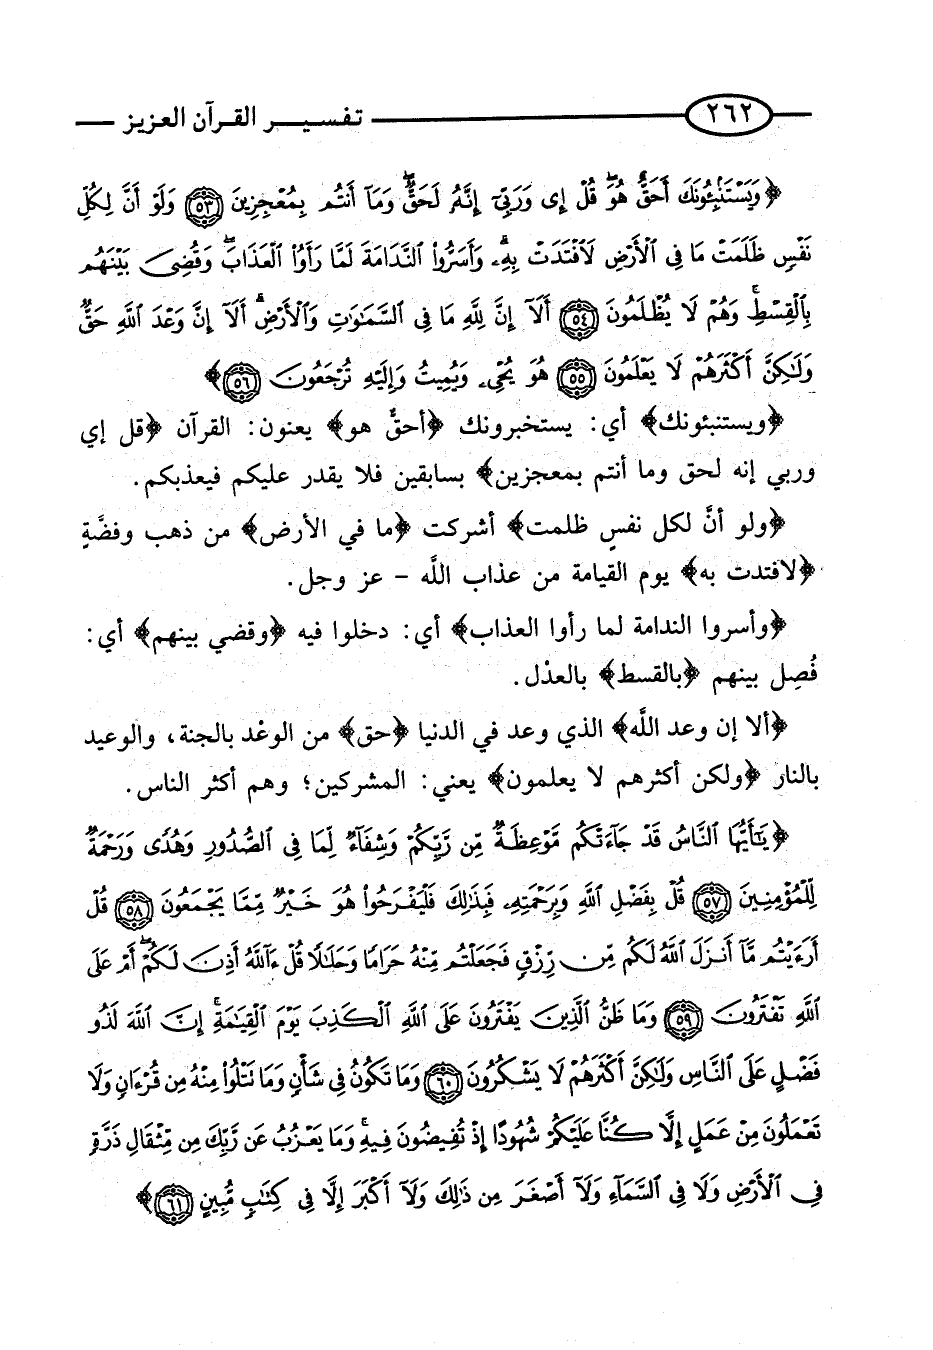 ٢٦٢ تفسير القرآن العزيز
﴿وَيَسْتَنۢبِـُٔونَكَ أَحَقٌّ هُوَ ۖ قُلْ إِى وَرَبِّىٓ إِنَّهُۥ لَحَقٌّ ۖ وَمَآ أَنتُم بِمُعْجِزِينَ ٥٣ وَلَوْ أَنَّ لِكُلِّ
نَفْسٍ ظَلَمَتْ مَا فِى ٱلْأَرْضِ لَٱفْتَدَتْ بِهِۦ ۗ وَأَسَرُّوا۟ ٱلنَّدَامَةَ لَمَّا رَأَوُا۟ ٱلْعَذَابَ ۖ وَقُضِىَ بَيْنَهُم
بِٱلْقِسْطِ ۚ وَهُمْ لَا يُظْلَمُونَ ٥٤ أَلَآ إِنَّ لِلَّهِ مَا فِى ٱلسَّمَٰوَٰتِ وَٱلْأَرْضِ ۗ أَلَآ إِنَّ وَعْدَ ٱللَّهِ حَقٌّ
وَلَٰكِنَّ أَكْثَرَهُمْ لَا يَعْلَمُونَ ٥٥ هُوَ يُحْىِۦ وَيُمِيتُ وَإِلَيْهِ تُرْجَعُونَ ٥٦﴾
﴿ويستنبئونك﴾ أي: يستخبرونك ﴿أحقٌّ هو﴾ يعنون: القرآن ﴿قل إي
وربي إنه لحق وما أنتم بمعجزين﴾ بسابقين فلا يقدر عليكم فيعذبكم.
﴿ولو أنَّ لكل نفسٍ ظلمت﴾ أشركت ﴿ما في الأرض﴾ من ذهب وفضَّةٍ
﴿لافتدت به﴾ يوم القيامة من عذاب اللَّه - عز وجل.
﴿وأسروا الندامة لما رأوا العذاب﴾ أي: دخلوا فيه ﴿وقضي بينهم﴾ أي:
فُصِل بينهم ﴿بالقسط﴾ بالعدْل.
﴿ألا إن وعد اللَّه﴾ الذي وعد في الدنيا ﴿حق﴾ من الوعْد بالجنة، والوعيد
بالنار ﴿ولكن أكثرهم لا يعلمون﴾ يعني: المشركين؛ وهم أكثر الناس.
﴿يَٰٓأَيُّهَا ٱلنَّاسُ قَدْ جَآءَتْكُم مَّوْعِظَةٌ مِّن رَّبِّكُمْ وَشِفَآءٌ لِّمَا فِى ٱلصُّدُورِ وَهُدًى وَرَحْمَةٌ
لِّلْمُؤْمِنِينَ ٥٧ قُلْ بِفَضْلِ ٱللَّهِ وَبِرَحْمَتِهِۦ فَبِذَٰلِكَ فَلْيَفْرَحُوا۟ هُوَ خَيْرٌ مِّمَّا يَجْمَعُونَ ٥٨ قُلْ
أَرَءَيْتُم مَّآ أَنزَلَ ٱللَّهُ لَكُم مِّن رِّزْقٍ فَجَعَلْتُم مِّنْهُ حَرَامًا وَحَلَٰلًا قُلْ ءَآللَّهُ أَذِنَ لَكُمْ ۖ أَمْ عَلَى
ٱللَّهِ تَفْتَرُونَ ٥٩ وَمَا ظَنُّ ٱلَّذِينَ يَفْتَرُونَ عَلَى ٱللَّهِ ٱلْكَذِبَ يَوْمَ ٱلْقِيَٰمَةِ ۗ إِنَّ ٱللَّهَ لَذُو
فَضْلٍ عَلَى ٱلنَّاسِ وَلَٰكِنَّ أَكْثَرَهُمْ لَا يَشْكُرُونَ ٦٠ وَمَا تَكُونُ فِى شَأْنٍ وَمَا تَتْلُوا۟ مِنْهُ مِن قُرْءَانٍ وَلَا
تَعْمَلُونَ مِنْ عَمَلٍ إِلَّا كُنَّا عَلَيْكُمْ شُهُودًا إِذْ تُفِيضُونَ فِيهِ ۚ وَمَا يَعْزُبُ عَن رَّبِّكَ مِن مِّثْقَالِ ذَرَّةٍ
فِى ٱلْأَرْضِ وَلَا فِى ٱلسَّمَآءِ وَلَآ أَصْغَرَ مِن ذَٰلِكَ وَلَآ أَكْبَرَ إِلَّا فِى كِتَٰبٍ مُّبِينٍ ٦١﴾